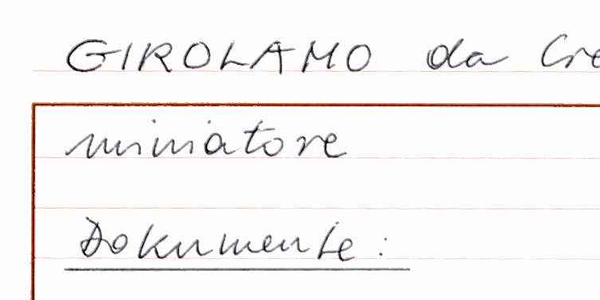 GIROLAMO da Cre
miniatore
Dokumente: